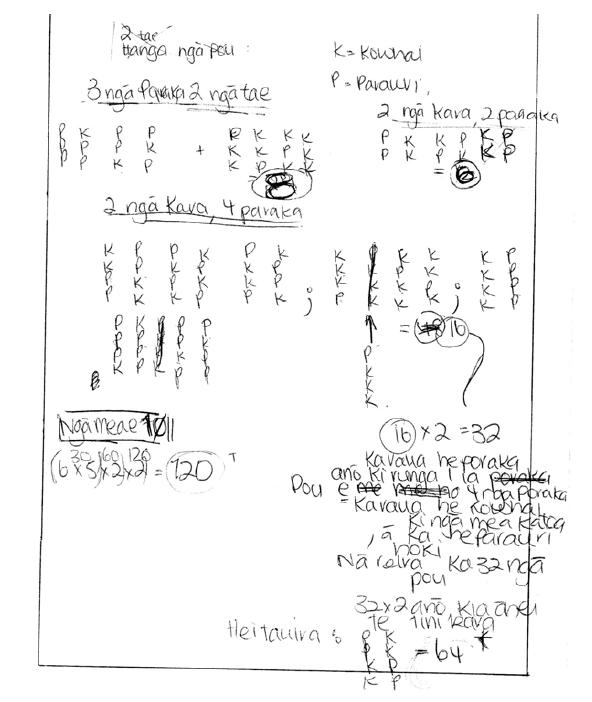 2 tae
Hanga ngā pou :
K = Kowhai
P = Parauri,
3 ngā Paraka 2 ngā tae
2 ngā kara, 2 paraka
P K P P
P P P K
P P K P
+
K K K K
K K P K
K P K K
8
P K K P K P
P K P K K P
= 6
2 ngā Kara, 4 paraka
K P P K P K
K P K P K P
P K K P K P
P K P P P K ;
K K K P
K P K K P
K K K K P
P K K P K ; K P
= 16
P K P P
P P P K P
P P K P
K P K P P
P
K
K
K
K
Ngā meae 10
(6 × 5) × 2) × 2) = 120
30 60 120
16 × 2 = 32
Ka raua he poraka
anō ki runga i ia
Pou e no 4 nga poraka
= Ka raua he kowhai
ki nga mea katoa
, ā ka he parauri
hoki
Nā reira Ka 32 ngā
pou
32 × 2 anō, kia ānei
te tini kara
Hei tauira :
P K
P K
K P
K P
= 64